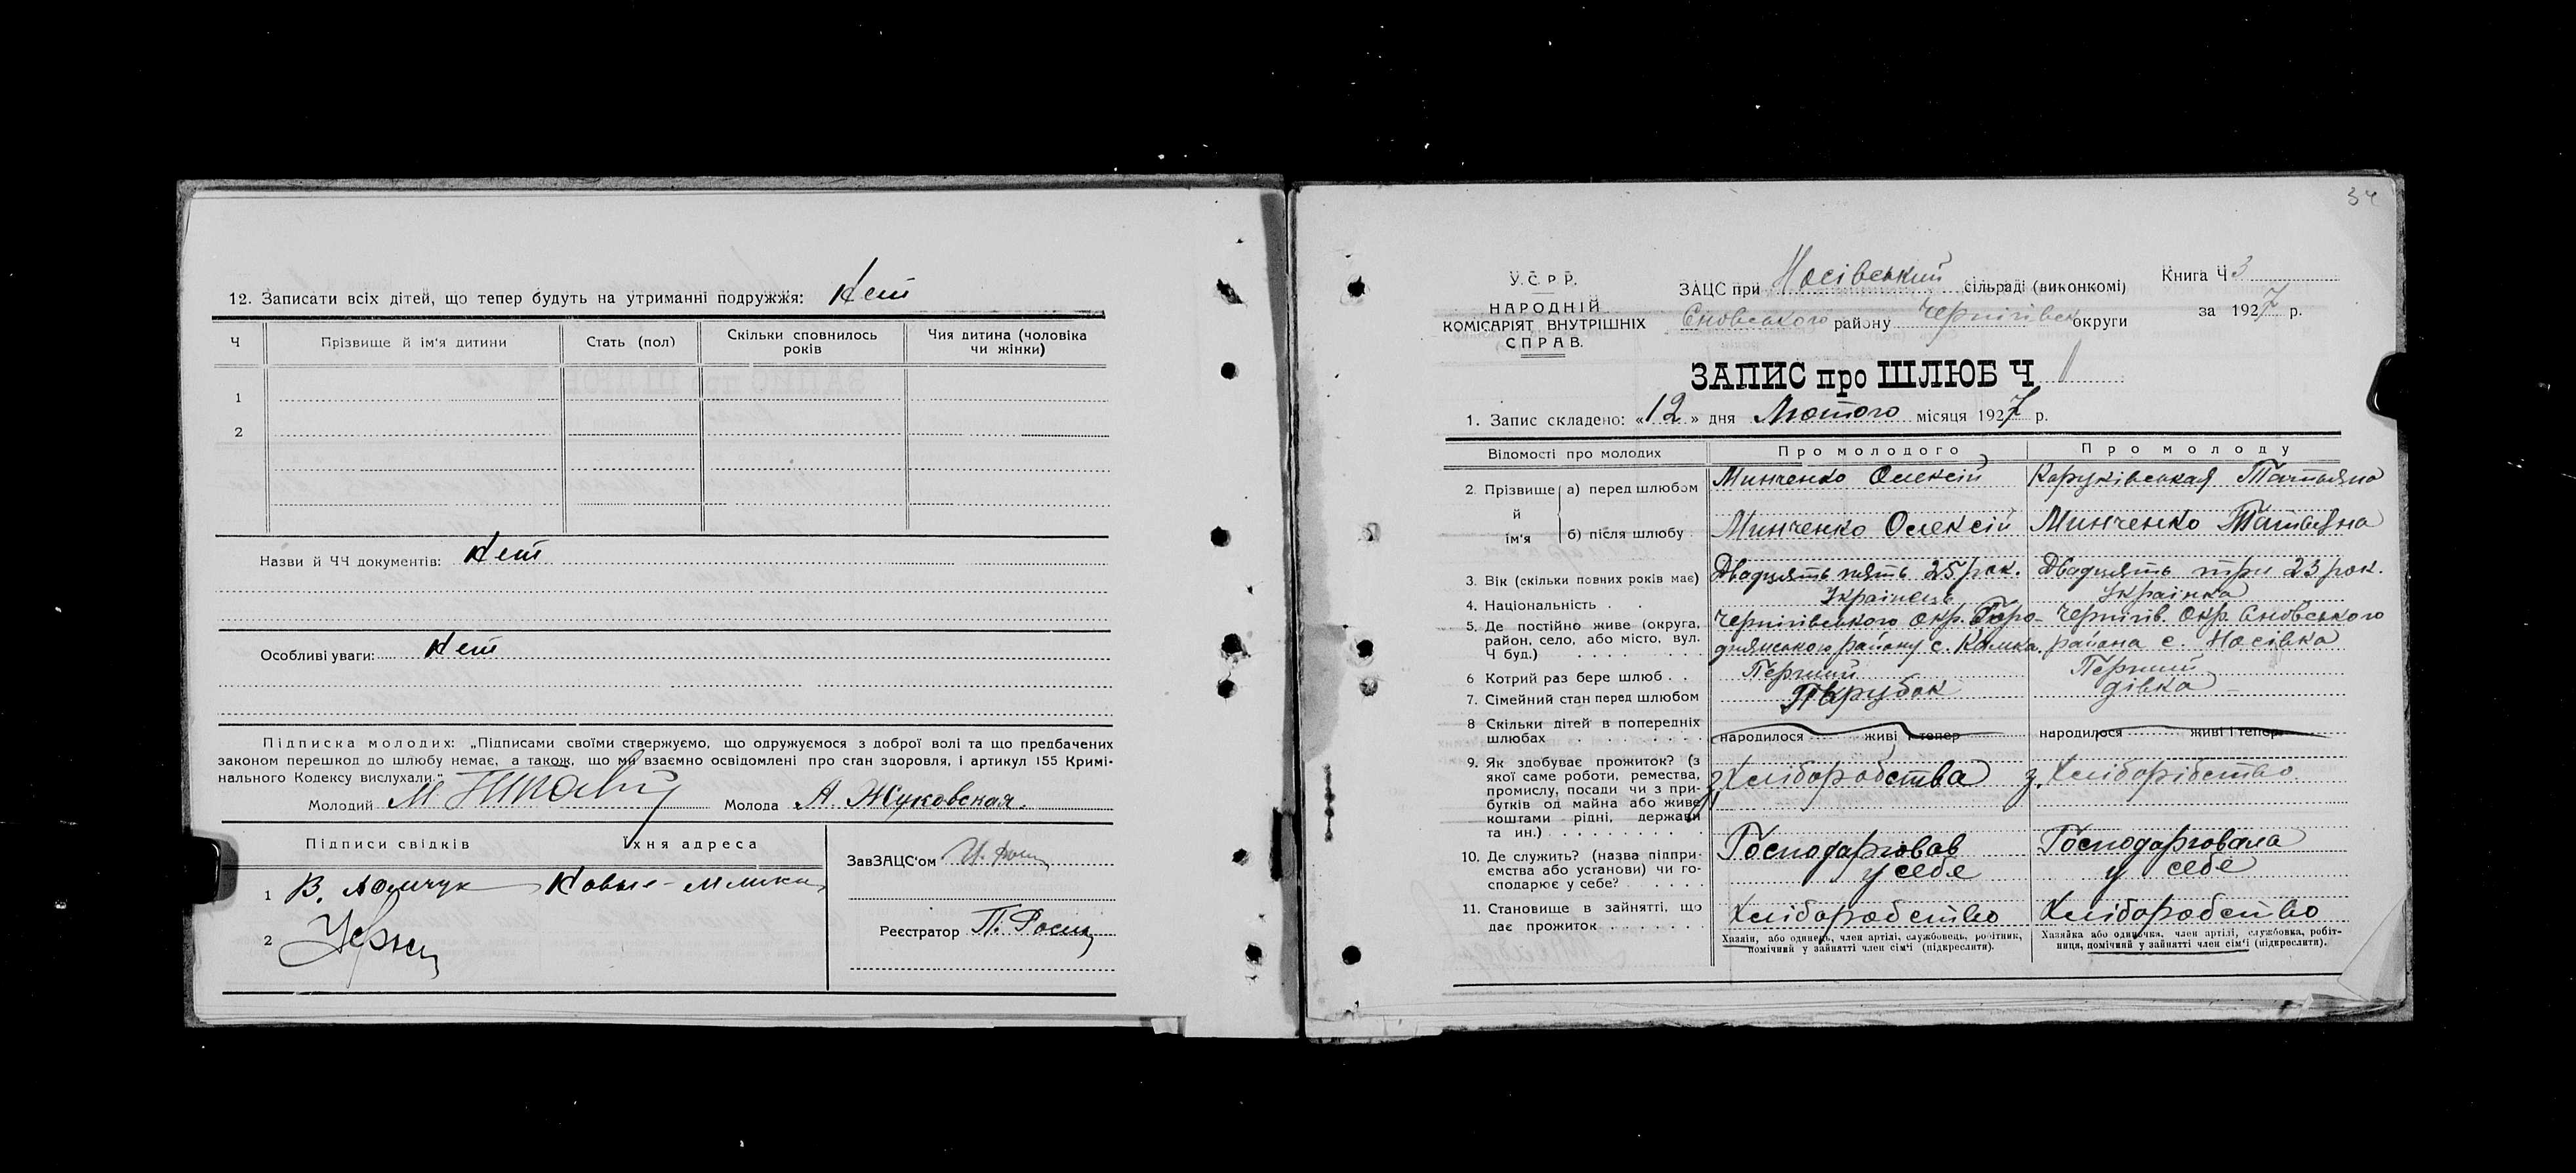 12. Записати всіх дітей, що тепер будуть на утриманні подружжя: Нет
Ч Прізвище й ім'я дитини Стать (пол) Скільки сповнилось років Чия дитина (чоловіка чи жінки)
1
2
Назви й ЧЧ документів: Нет
Особливі уваги: Нет
Підписка молодих: „Підписами своїми ствержуємо, що одружуємося з доброї волі та що предбачених
законом перешкод до шлюбу немає, а також, що ми взаємно освідомлені про стан здоровля, і артикул 155 Кримі-
нального Кодексу вислухали."
Молодий М. Молода А Жуковская.
Підписи свідків Їхня адреса
ЗавЗАЦС'ом
1 В. Новые-Млины
Реєстратор П.
2
34
У.С.Р.Р.
НАРОДНІЙ
КОМІСАРІЯТ ВНУТРІШНІХ
СПРАВ.
ЗАЦС при Носівський сільраді (виконкомі)
Сновського району Чернігівськ округи
Книга Ч 3
за 1927 р.
ЗАПИС про ШЛЮБ Ч 1
1. Запис складено: «12» дня Лютого місяця 1927 р.
Відомості про молодих Про молодого Про молоду
2. Прізвище й ім'я а) перед шлюбом Минченко Олексій Каруківськая Татьяна
б) після шлюбу Минченко Олексій Минченко Татьяна
3. Вік (скільки повних років має) Двадцять пять 25 рок. Двадцять три 23 рок.
4. Національність . . Українець Українка
5. Де постійно живе (округа, Чернігівського Окр. Горо- Чернігів. Окр. Сновського
район, село, або місто, вул. днянського району с. района с. Носівка
Ч буд.) . . . . . . . .
6 Котрий раз бере шлюб . . Перший Перший
7. Сімейний стан перед шлюбом Парубок дівка
8 Скільки дітей в попередніх
шлюбах . . . . . . . . народилося живі і тепер народилося живі і тепер
9. Як здобуває прожиток? (з
якої саме роботи, ремества, з Хліборобства з. Хліборібство
промислу, посади чи з при-
бутків од майна або живе
коштами рідні, держави
та ин.) . . . . . . . . .
10. Де служить? (назва підпри- Господарював Господарювала
ємства або установи) чи го- у себе у себе
сподарює у себе? . . . . .
11. Становище в зайнятті, що Хліборобство Хліборобство
дає прожиток . . . . . . .
Хазяїн, або одинець, член артілі, службовець, робітник,
помічний у зайнятті член сім'ї (підкреслити).
Хазяйка або одиночка, член артілі, службовка, робіт-
ниця, помічний у зайнятті член сім'ї (підкреслити).